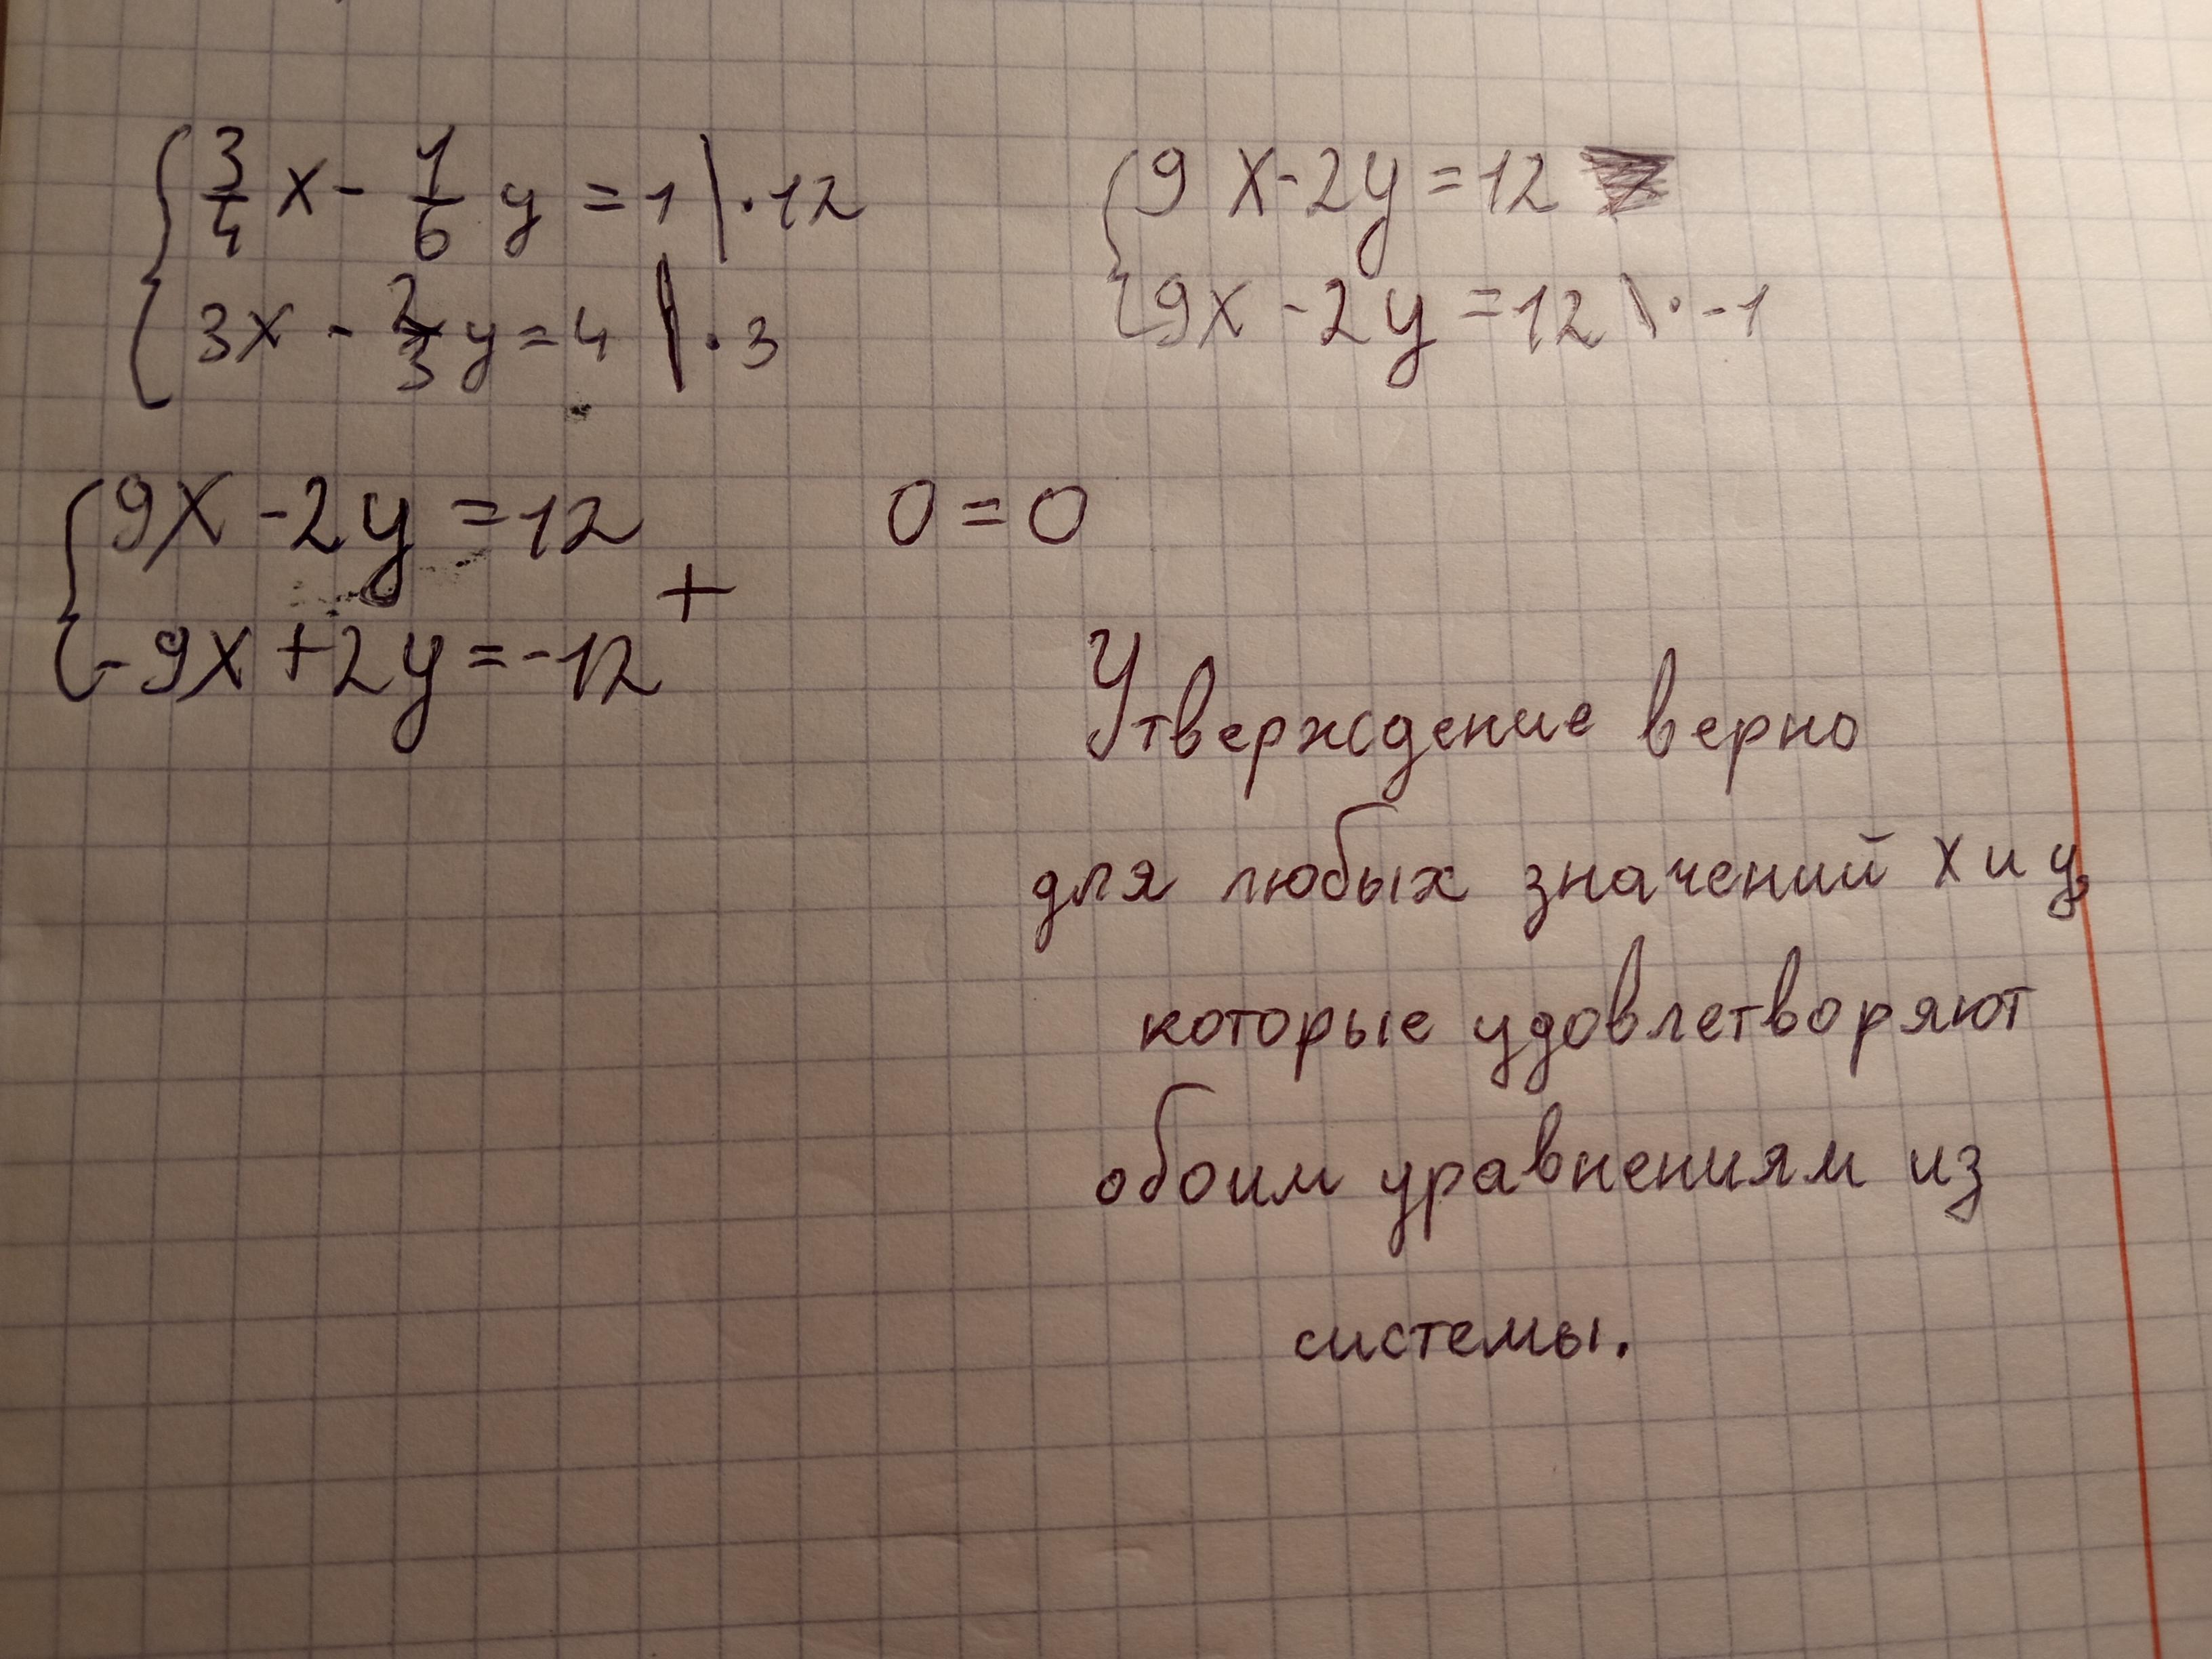 3/4 x - 1/6 y = 1 | · 12
3x - 2/3 y = 4 | · 3
9x - 2y = 12
9x - 2y = 12 \ · -1
9x - 2y = 12
+
-9x + 2y = -12
0 = 0
Утверждение верно
для любых значений x и y,
которые удовлетворяют
обоим уравнениям из
системы.